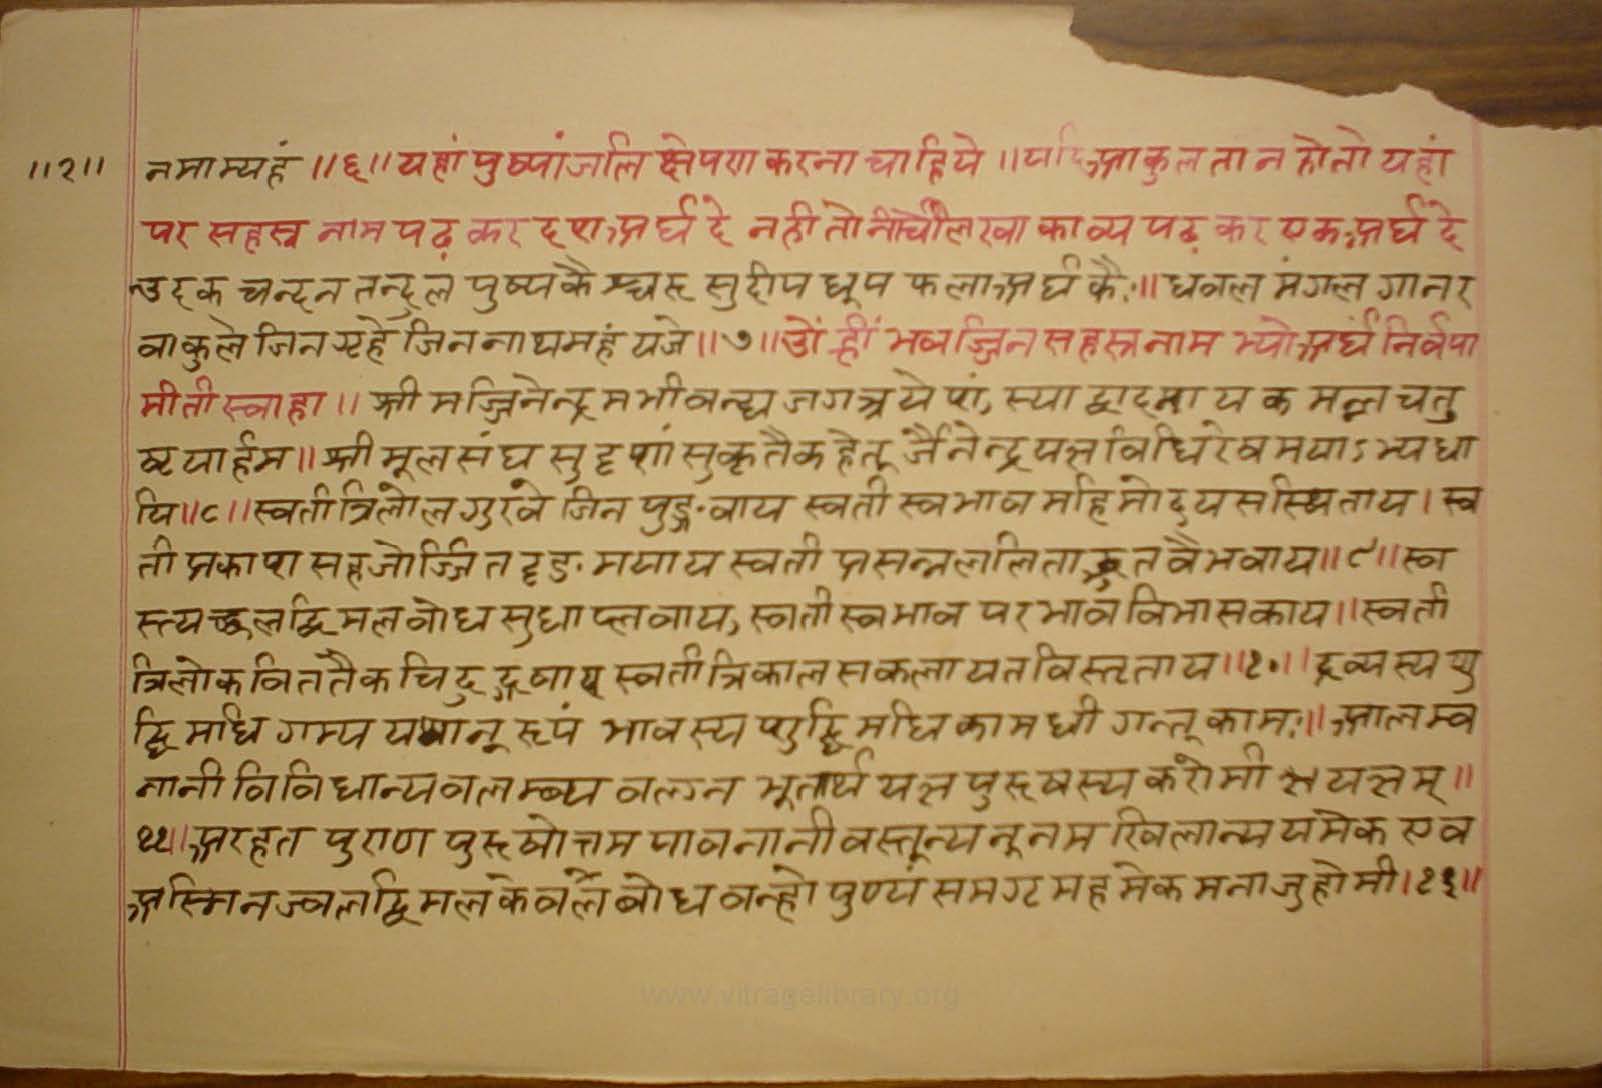 ॥२॥ नमाम्यहं ॥६॥ यहां पुष्पांजलि क्षेपण करना चाहिये ॥ यदि आकुलता न हो तो यहां
पर सहस्त्र नाम पढ़ कर दश अर्घ दे नही तो नीचे लिखा काव्य पढ़ कर एक अर्घ दे
उदक चन्दन तन्दुल पुष्पकै श्चरू सुदीप धूप फला अर्घ कैः॥ धवल मंगल गानर
वाकुले जिन गृहे जिन नाथमहं यजे ॥७॥ ओं ह्रीं भवज्जिन सहस्त्र नाम भ्यो अर्घं निर्वपा
मीती स्वाहा ॥ श्री मज्जिनेन्द्र मभीवन्द्य जगत्र येशं, स्याद्वादनायक मनन्त चतु
ष्टयार्हम ॥ श्री मूलसंघ सुदृशां सुकृतैक हेतू र्जैनेन्द्र यज्ञ विधिरेष मयाऽभ्यधा
यि ॥८॥ स्वती त्रिलोल गुरवे जिन पुङ्गवाय स्वती स्वभाव महिमोदय सस्थिताय । स्व
ती प्रकाश सहजोर्ज्जित दृङ. मयाय स्वती प्रसन्नललिताद्भुत वैभवाय ॥९॥ स्व
स्त्यच्छलद्विमल बोध सुधा प्लवाय, स्वती स्वभाव परभाव विभासकाय ॥ स्वती
त्रिलोक विततैक चिदुद्गमाय स्वती त्रिकाल सकलायत विस्तृताय ॥१०॥ द्रव्यस्य शु
द्धि मधि गम्य यथानू रूपं भावस्य शुद्धि मधिकामधी गन्तू कामः॥ आलम्ब
नानी विविधान्यवलम्ब्य वल्गन भूतार्थ यज्ञ पुरूषस्य करोमी यज्ञम् ॥
११॥ अरहत पुराण पुरूषोत्तम पावनानी वस्तून्य नूनम खिलान्य यमेक एव
अस्मिन ज्वलद्विमल केवल बोध वन्हो पुण्यं समग्ट महमेक मना जुहोमी ।१२॥
www.vitragelibrary.org